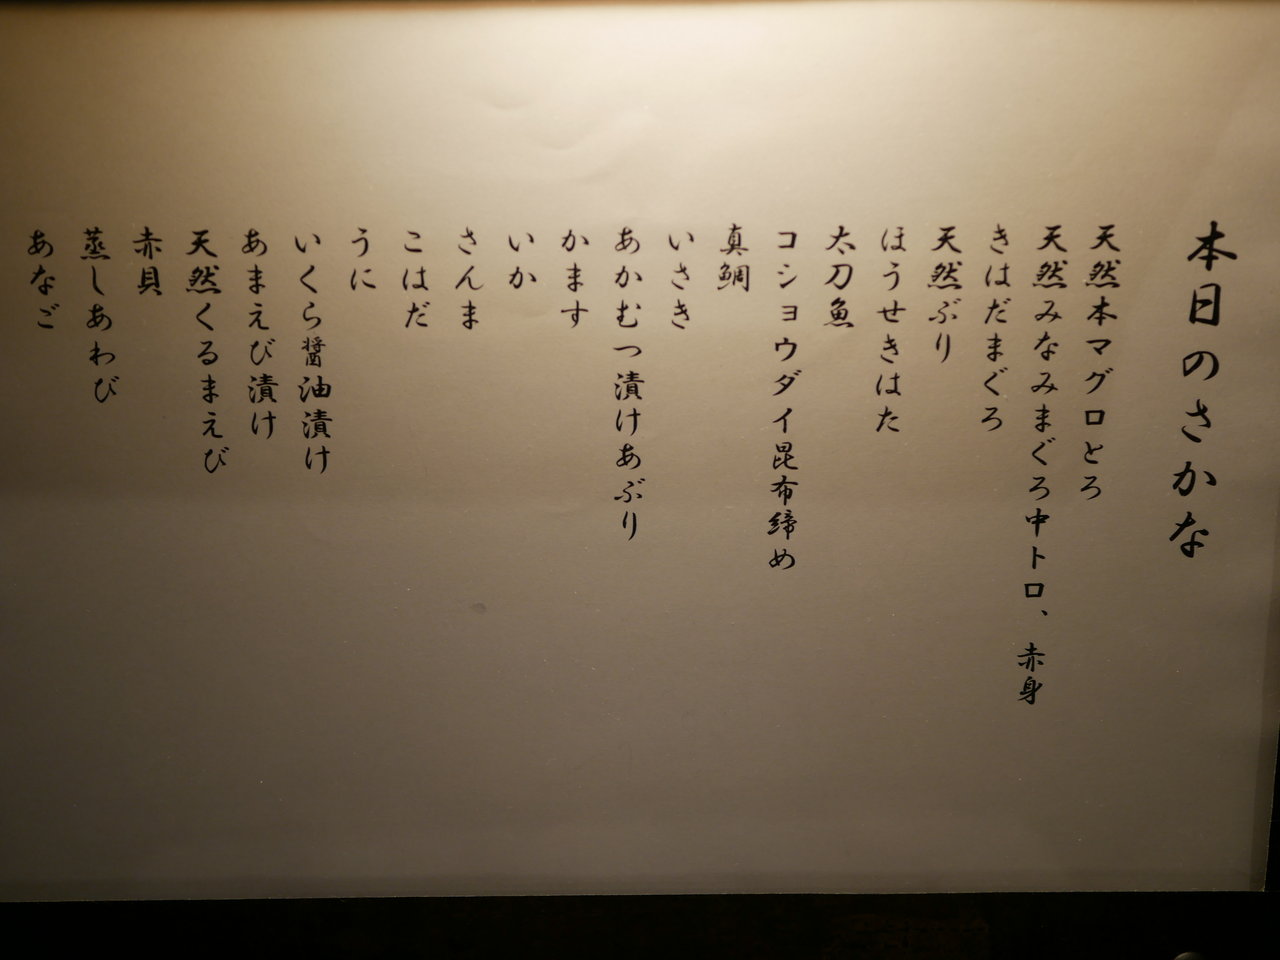 本日のさかな
天然本マグロとろ
天然みなみまぐろ中トロ、赤身
きはだまぐろ
天然ぶり
ほうせきはた
太刀魚
コショウダイ昆布締め
真鯛
いさき
あかむつ漬けあぶり
かます
いか
さんま
こはだ
うに
いくら醤油漬け
あまえび漬け
天然くるまえび
赤貝
蒸しあわび
あなご